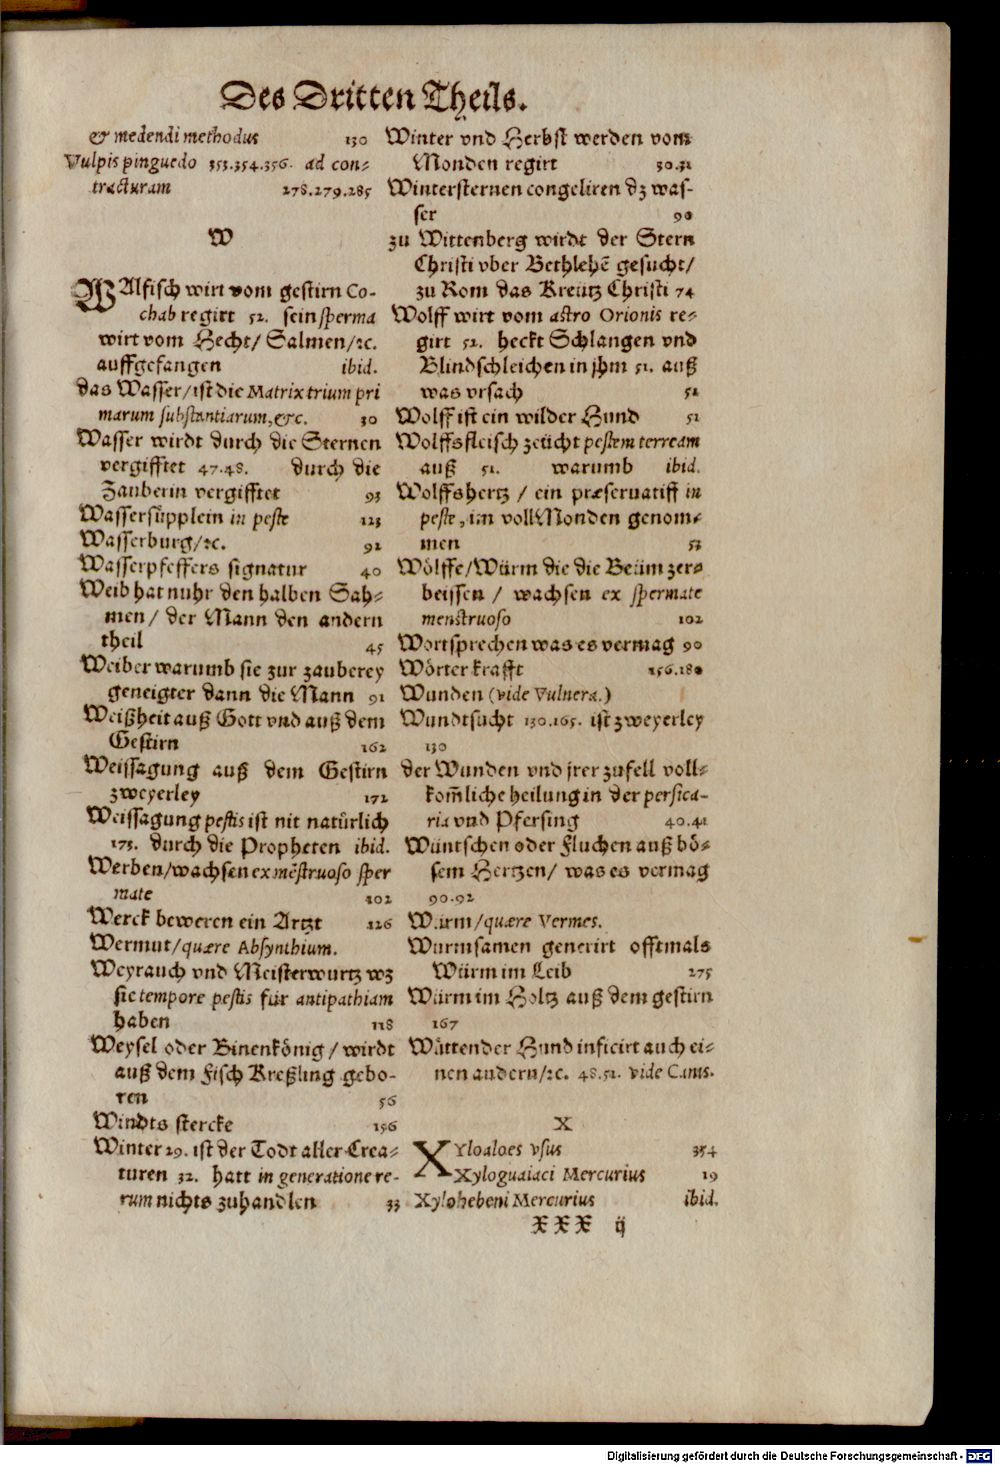 Des Dritten Theils.
& medendi methodus 130
Vulpis pinguedo 353.354.356. ad con-
tracturam 278.279.285
W
WAlfisch wirt vom gestirn Co-
chab regirt 52. sein sperma
wirt vom Hecht/ Salmen/ꝛc.
auffgefangen ibid.
das Wasser/ ist die Matrix trium pri
marum substantiarum, &c. 30
Wasser wirdt durch die Sternen
vergifftet 47.48. durch die
Zauberin vergifftet 93
Wassersüpplein in peste 123
Wasserburg/ꝛc. 92
Wasserpfeffers signatur 40
Weib hat nuhr den halben Sah-
men/ der Mann den andern
theil 45
Weiber warumb sie zur zauberey
geneigter dann die Mann 91
Weißheit auß Gott vnd auß dem
Gestirn 162
Weissagung auß dem Gestirn
zweyerley 172
Weissagung pestis ist nit natürlich
173. durch die Propheten ibid.
Werben/wachsen ex mẽstruoso sper
mate 102
Werck beweren ein Artzt 126
Wermut/quære Absynthium.
Weyrauch vnd Meisterwurtz wz
sie tempore pestis für antipathiam
haben 118
Weysel oder Binenkönig/ wirdt
auß dem Fisch Kreßling gebo-
ren 56
Windts stercke 156
Winter 29. ist der Todt aller Crea-
turen 32. hatt in generatione re-
rum nichts zuhandlen 33
Winter vnd Herbst werden vom
Monden regirt 30.31
Wintersternen congeliren dz was-
ser 90
zu Wittenberg wirdt der Stern
Christi vber Bethlehẽ gesucht/
zu Rom das Kreutz Christi 74
Wolff wirt vom astro Orionis re-
girt 52. heckt Schlangen vnd
Blindschleichen in jhm 51. auß
was vrsach 51
Wolff ist ein wilder Hund 51
Wolffsfleisch zeücht pestem terream
auß 51. warumb ibid.
Wolffshertz / ein præservatiff in
peste, im voll Monden genom-
men 53
Wölffe/Würm die die Beüm zer-
beissen / wachsen ex spermate
menstruoso 102
Wortsprechen was es vermag 90
Wörter krafft 156.180
Wunden (vide Vulnera.)
Wundtsucht 130.165. ist zweyerley
130
der Wunden vnd jrer zufell voll-
kom̃liche heilung in der persica-
ria vnd Pfersing 40.41
Wüntschen oder Fluchen auß bö-
sem Hertzen/ was es vermag
90.92
Wurm/quære Vermes.
Wurmsamen generirt offtmals
Würm im Leib 275
Würm im Holtz auß dem gestirn
167
Wüttender Hund inficirt auch ei-
nen andern/ꝛc. 48.52. vide Canis.
X
XYloaloes vsus 354
Xyloguaiaci Mercurius 19
Xylohebeni Mercurius ibid.
XXX ij
Digitalisierung gefördert durch die Deutsche Forschungsgemeinschaft - DFG